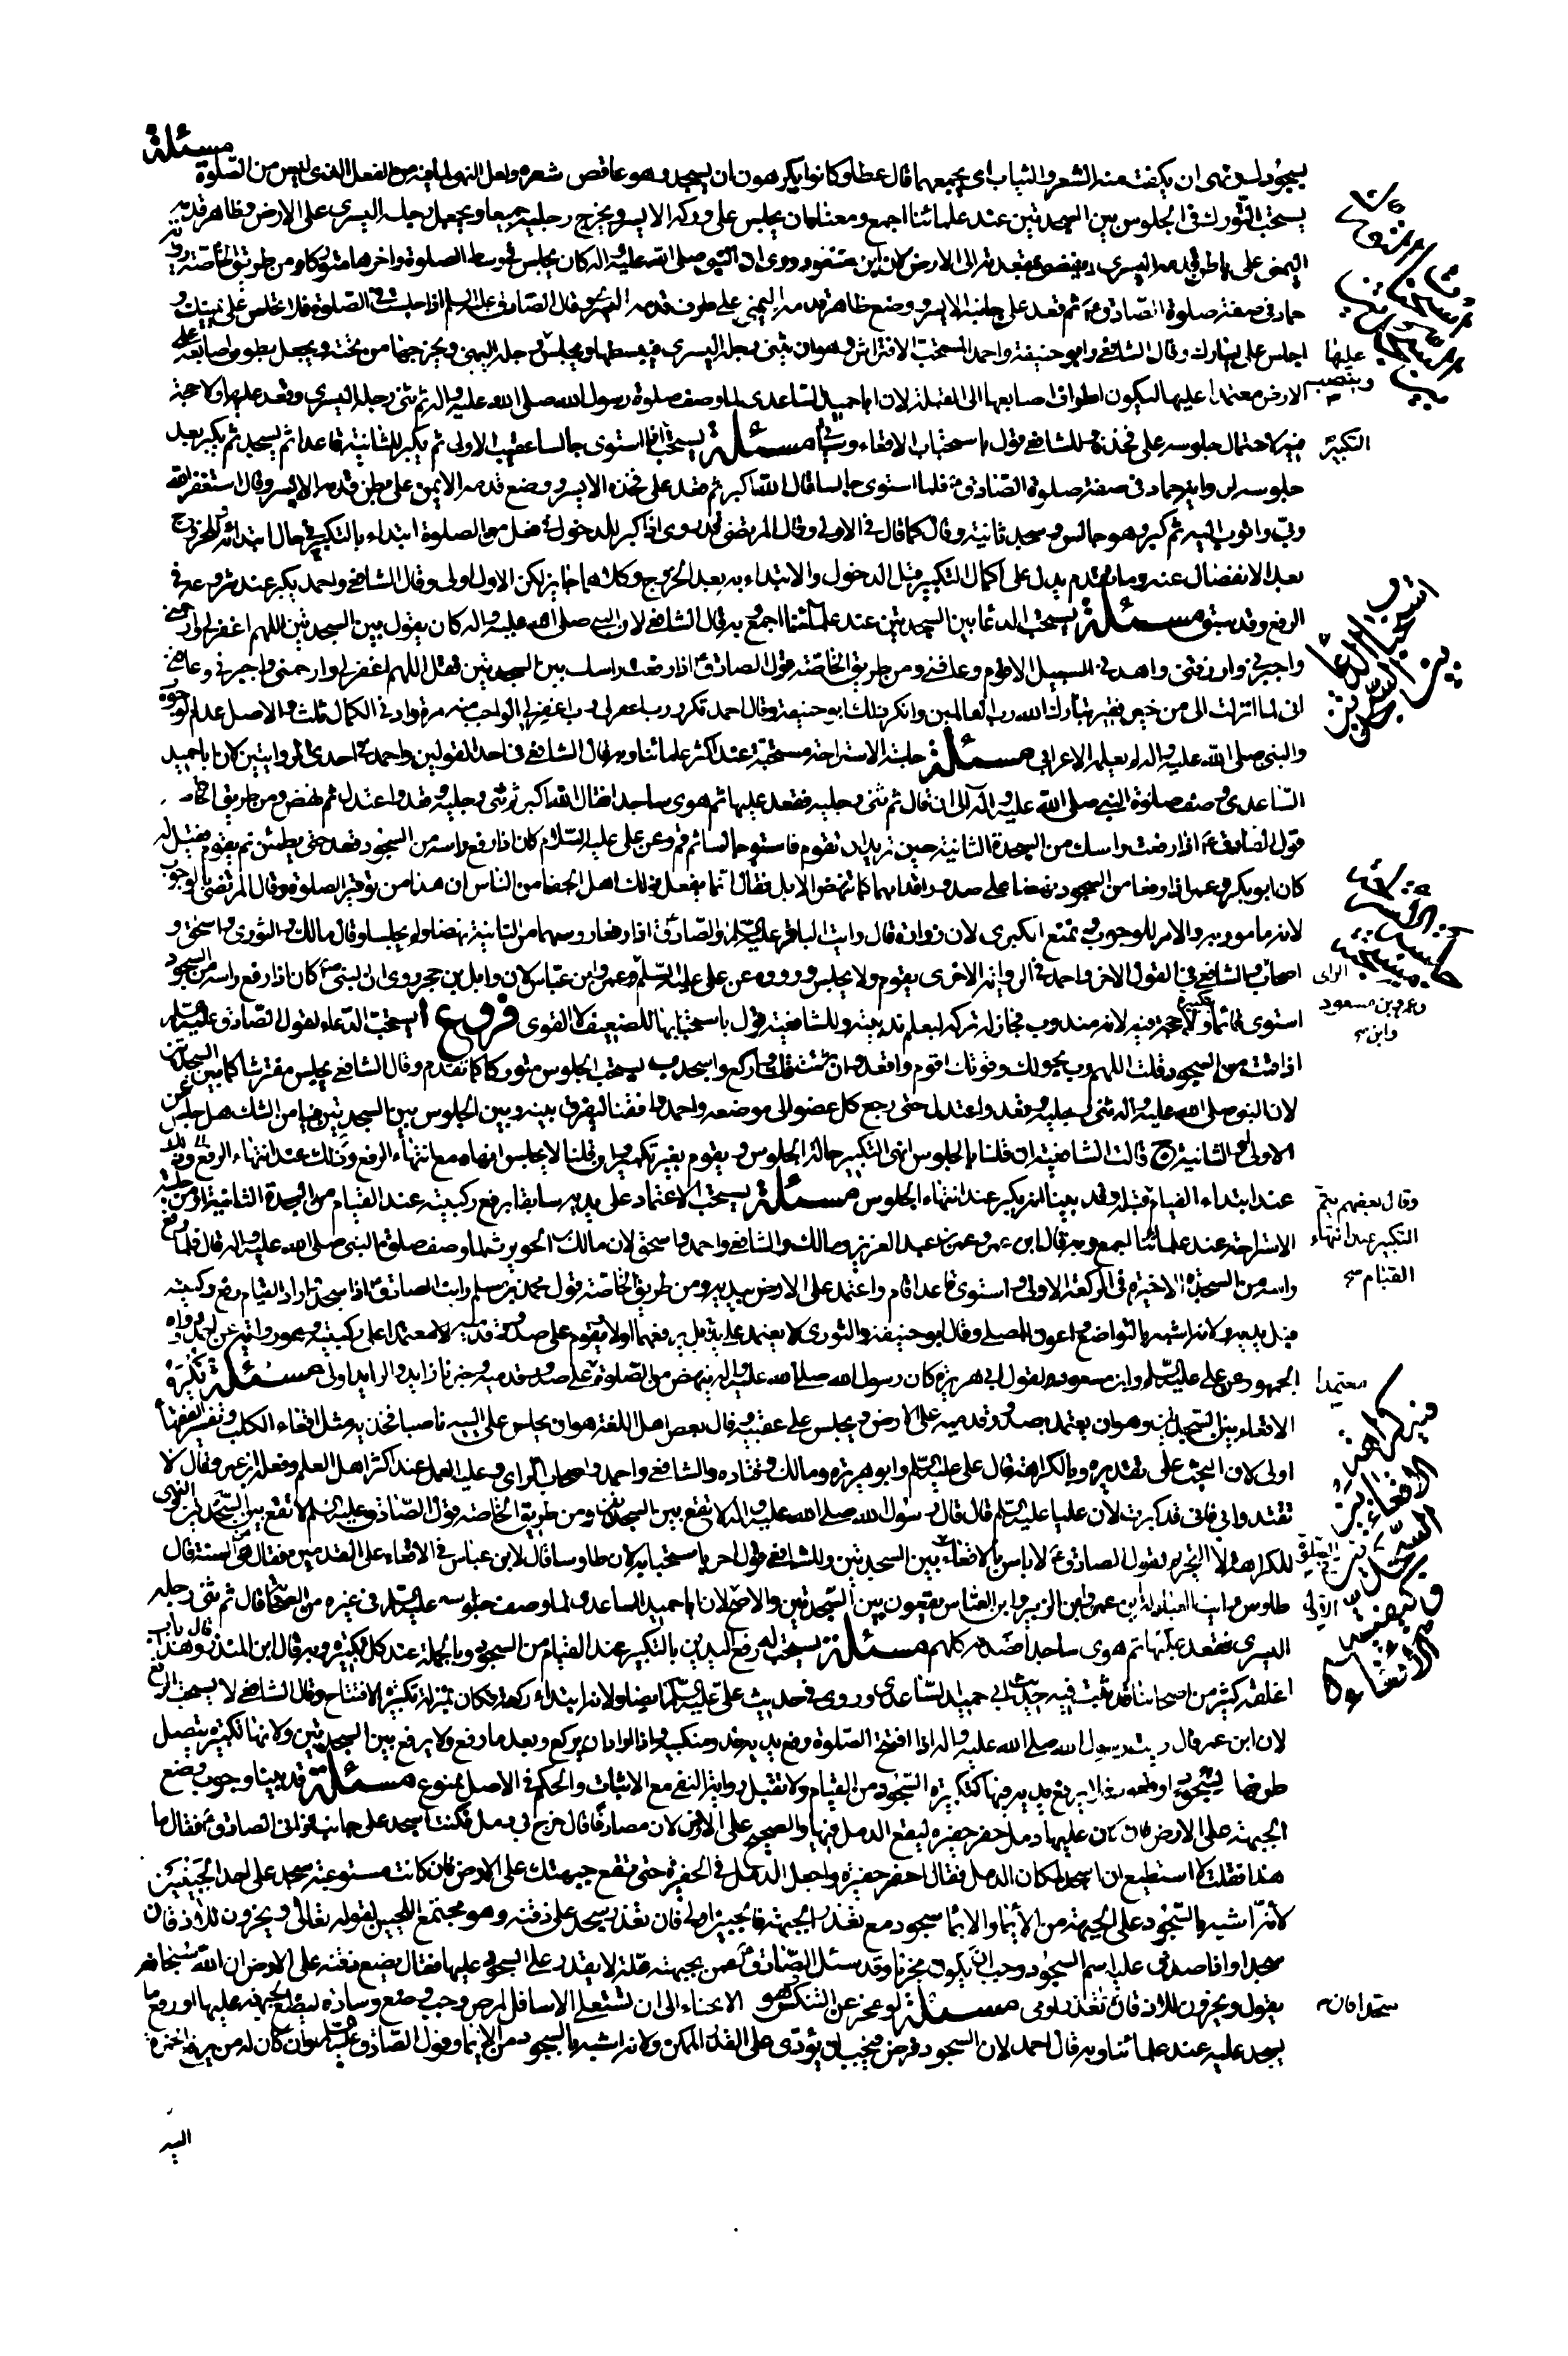 مسئلة
يسجود ونهى ان يكفت منه الشعر والثياب اى يجمعهما قال عطا وكانوا يكرهون ان يسجد وهو عاقص شعره ولعل النهى لما فيه من الفعل الذى ليس من الصلوة
يستحب التورك فى الجلوس بين السجدتين عند علمائنا اجمع ومعناه ان يجلس على وركه الايسر ويخرج رجليه جميعا ويجعل رجله اليسرى على الارض وظاهر قدمه
اليمنى على باطن قدمه اليسرى ويفضى بمقعدته الى الارض لان ابن مسعود روى ان النبى صلى الله عليه واله كان يجلس فى وسط الصلوة واخرها متوركا ومن طريق الخاصة
حماد فى صفة صلوة الصادق ع ثم قعد على جانبه الايسر ووضع ظاهر قدمه اليمنى على طرف قدمه اليسرى وقال الصادق عليه السلم اذا جلست فى الصلوة فلا تجلس على يمينك و
اجلس على يسارك وقال الشافعى وابو حنيفة واحمد المستحب الافتراش وهو ان يثنى رجله اليسرى فيبسطها ويجلس عليها وينصب رجله اليمنى ويخرجها من تحته ويجعل بطون اصابعه على
الارض معتمدا عليها ليكون اطراف اصابعها الى القبلة لان ابا حميد الساعدى لما وصف صلوة رسول الله صلى الله عليه واله ثم ثنى رجله اليسرى وقعد عليها ولا حجة
فيه لاحتمال جلوسه على فخذه وللشافعى قول باستحباب الاقعاء وسياتى مسئلة يستحب اذا استوى جالسا عقيب الاولى ثم يكبر للثانية قاعدا ثم يسجد ثم يكبر بعد
جلوسه لرواية حماد فى صفة صلوة الصادق ع فلما استوى جالسا قال الله اكبر ثم قعد على فخذه الايسر ووضع قدمه الايمن على بطن قدمه الايسر وقال استغفر الله
ربى واتوب اليه ثم كبر وهو جالس وسجد ثانية وقال كما قال فى الاولى وقال المرتضى قد روى اذا كبر للدخول فى فعل من الصلوة ابتداء بالتكبير فى حال ابتدائه وللخروج
بعد الانفصال عنه وما تقدم يدل على اكمال التكبير قبل الدخول والابتداء به بعد الخروج وكلاهما جايز لكن الاول اولى وقال الشافعى واحمد يكبر عند شروعه فى
الرفع وقد سبق مسئلة يستحب الدعا بين السجدتين عند علمائنا اجمع وبه قال الشافعى لان النبى صلى الله عليه واله كان يقول بين السجدتين اللهم اغفر لى وارحمنى
واجبرنى وارزقنى واهدنى السبيل الاقوم وعافنى ومن طريق الخاصة قول الصادق ع اذا رفعت راسك بين السجدتين فقل اللهم اغفر لى وارحمنى واجرنى وعافنى
انى لما انزلت الى من خير فقير تبارك الله رب العالمين وانكر ذلك ابو حنيفة وقال احمد تكرر رب اغفر لى رب اغفر لى الواجب منه مرة وادنى الكمال ثلث والاصل عدم الوجوب
والنبى صلى الله عليه واله لم يعلمه الاعرابى مسئلة جلسة الاستراحة مستحبة عند اكثر علمائنا وبه قال الشافعى فى احد القولين واحمد فى احدى الروايتين لان ابا حميد
الساعدى وصف صلوة النبى صلى الله عليه واله الى ان قال ثم ثنى رجليه فقعد عليها ثم هوى ساجدا فقال الله اكبر ثم ثنى رجليه وقعد واعتدل ثم نهض ومن طريق الخاصة
قول الصادق ع اذا رفعت راسك من السجدة الثانية حين تريد ان تقوم فاستو جالسا ثم قم وعن على عليه السلام كان اذا رفع راسه من السجود قعد حتى يطمئن ثم يقوم فقيل له
كان ابو بكر وعمر اذا رفعا من السجود نهضا على صدور اقدامهما كما تنهض الابل فقال انما يفعل ذلك اهل الجفا من الناس ان هذا من توقير الصلوة وقال المرتضى بالوجوب
لانه مامور به والامر للوجوب ويمنع الكبرى لان زرارة قال رايت الباقر عليه السلم والصادق ع اذا رفعا رؤسهما من الثانية نهضا ولم يجلسا وقال مالك والثورى واسحق و
اصحاب الراى والشافعى فى القول الاخر واحمد فى الرواية الاخرى يقوم ولا يجلس ورووه عن على عليه السلم وعمر وابن عباس لان وايل بن حجر روى ان النبى ص كان اذا رفع راسه من السجود
استوى قائما بتكبيرة ولا حجة فيه لانه مندوب فجاز له تركه ليعلم ندبيته وللشافعية قول باستحبابها للضعيف لا القوى فروع ا يستحب الدعاء لقول الصادق عليه السلم
اذا قمت من السجود قلت اللهم رب بحولك وقوتك اقوم واقعد وان شئت قلت واركع واسجد ب يستحب الجلوس متوركا كما تقدم وقال الشافعى يجلس مفترشا كما بين السجدتين
لان النبى صلى الله عليه واله ثنى رجليه وقعد واعتدل حتى رجع كل عضو الى موضعه واحمد وافقنا ليفرق بينه وبين الجلوس بين السجدتين فيامن الشك هل جلس عن
الاولى او الثانية ج قالت الشافعية ان قلنا بالجلوس انهى التكبير حالة الجلوس ويقوم بغير تكبير وان قلنا لا يجلس انهاه مع انتهاء الرفع وذلك عند انتهاء الرفع
عند ابتداء القيام قبله وقد بينا انه يكبر عند انتهاء الجلوس مسئلة يستحب الاعتماد على يديه سابقا برفع ركبتيه عند القيام من السجدة الثانية او من جلسة
الاستراحة عند علمائنا اجمع وبه قال ابن عمر وعمر بن عبد العزيز ومالك والشافعى واحمد واسحق لان مالك بن الحويرث لما وصف صلوة النبى صلى الله عليه واله قال فلما رفع
راسه من السجدة الاخيرة فى الركعة الاولى واستوى قاعدا قام واعتمد على الارض بيديه ومن طريق الخاصة قول محمد بن مسلم رايت الصادق ع اذا سجد واراد القيام رفع ركبتيه
قبل يديه ولانه اشبه بالتواضع واعون للمصلى وقال ابو حنيفة والثورى لا يعتمد على يديه بل يرفعهما اولا ويقوم على صدور قدميه معتمدا على ركبتيه
الجمهور عن على عليه السلم وابن مسعود لقول ابى هريرة كان رسول الله صلى الله عليه واله ينهض من الصلوة على صدور قدميه وخبرنا زايد والزايد اولى مسئلة يكره
الاقعاء بين السجدتين وهو ان يعتمد بصدور قدميه على الارض ويجلس على عقبيه وقال بعض اهل اللغة هو ان يجلس على اليتيه ناصبا فخذيه مثل اقعاء الكلب وتفسير الفقهاء
اولى لان البحث على تقديره وبالكراهة قال على عليه السلم وابو هريرة ومالك وقتادة والشافعى واحمد واصحاب الراى وعليه العمل عند اكثر اهل العلم وفعله ابن عمر وقال لا
تقتدوا بى فانى قد كبرت لان عليا عليه السلم قال قال رسول الله صلى الله عليه واله لا تقع بين السجدتين ومن طريق الخاصة قول الصادق عليه السلم لا تقع بين السجدتين والنهى
للكراهة لا التحريم لقول الصادق ع لا باس بالاقعاء فى الصلوة بين السجدتين وللشافعى قول اخر باستحبابه لان طاوسا قال لابن عباس فى الاقعاء على القدمين فقال هى السنة قال
طاوس رايت العبادلة ابن عمر وابن الزبير وابن العباس يقعون بين السجدتين والاصح الاول لان ابا حميد الساعدى لما وصف جلوسه عليه السلم فى عشرة من الصحابة قال ثم ثنى رجله
اليسرى فقعد عليها ثم هوى ساجدا فصدقه كلهم مسئلة يستحب له رفع اليدين بالتكبير عند القيام من السجود وبالجملة عند كل تكبيرة وبه قال ابن المنذر وهذا باب
اغفله كثير من اصحابنا قد ثبت فيه حديث ابى حميد الساعدى وروى فى حديث على عليه السلم ايضا ولانه ابتداء ركعة فكان بمنزلة تكبيرة الافتتاح وقال الشافعى لا يستحب الرفع
لان ابن عمر قال رايت رسول الله صلى الله عليه واله اذا افتتح الصلوة رفع يديه حذو منكبيه واذا اراد ان يركع وبعد ما رفع ولا يرفع بين السجدتين ولانها تكبيرة يتصل
طرفها بسجود او قعود فلا يرفع يديه فيها كتكبيرة السجود من القيام ولا تقبل رواية النفى مع الاثبات والحكم فى الاصل ممنوع مسئلة قد بينا وجوب وضع
الجبهة على الارض فان كان عليها دمل حفر حفيرة ليقع الدمل فيها والصحيح على الارض لان مصادفا قال خرج بى دمل فكنت اسجد على جانب فرانى الصادق ع فقال ما
هذا فقلت لا استطيع ان اسجد لمكان الدمل فقال احفر حفيرة واجعل الدمل فى الحفيرة حتى تقع جبهتك على الارض فان كانت مستوعبة سجد على احد الجبينين
لانه اشبه بالسجود على الجبهة من الايماء والايماء سجود مع تعذر الجبهة فالجبين اولى فان تعذر سجد على ذقنه وهو مجتمع اللحيين لقوله تعالى ويخرون للاذقان
سجدا واذا صدق عليه اسم السجود وجب ان يكون مجزيا وقد سئل الصادق ع عمن بجبهته علة لا يقدر على السجود عليها فقال يضع ذقنه على الارض ان الله سبحانه
يقول ويخرون للاذقان سجدا فان تعذر اومى مسئلة لو عجز عن التنكس وهو الانحناء الى ان تستعلى الاسافل لمرض وجب وضع وسادة ليضع الجبهة عليها او رفع ما
يسجد عليه عند علمائنا وبه قال احمد لان السجود فرض فيجب ان يؤدى على القدر الممكن ولانه اشبه بالسجود من الايماء وقول الصادق عليه السلم وان كان له من يرفع الخمرة
اليه
عليها
وينصب
التكبير
استحباب الدعاء
بين السجدتين
الراى
وعمر وبن مسعود
وقال بعضهم يتم
التكبير عند انتهاء
القيام
معتمدا
فى كراهة
الاقعاء بين
السجدتين
وكيفية
الاقعاء
سجدا فان